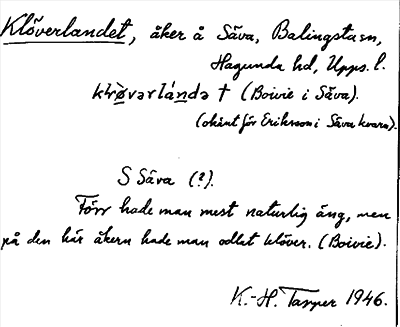 Klöverlandet, åker å Säva, Balingsta sn,
Hagunda hd, Upps. l.
klø̀vərlándə † (Boivie i Säva).
(okänt för Eriksson i Säva kvarn).
S Säva (?).
Förr hade man mest naturlig äng, men
på den här åkern hade man odlat klöver. (Boivie).
K.-H. Tasper 1946.